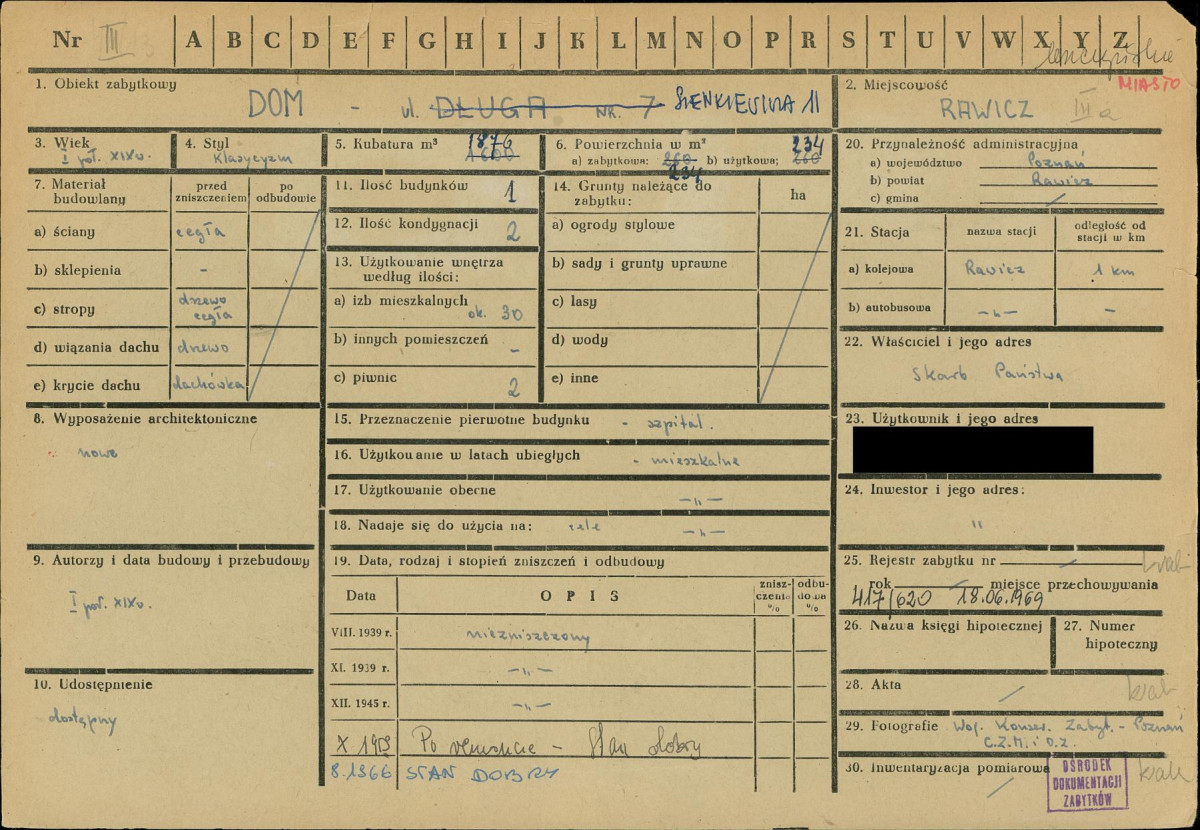 Nr III A B C D E F G H I J K L M N O P R S T U V W X Y Z
1. Obiekt zabytkowy
DOM - ul. DŁUGA NR. 7 SIENKIEWICZA 11
2. Miejscowość
MIASTO
RAWICZ IIIa
3. Wiek
I poł. XIXw.
4. Styl
Klasycyzm
5. Kubatura m³
1876
1600
6. Powierzchnia w m²
a) zabytkowa: 260 b) użytkowa: 660
234
234
7. Materiał budowlany
przed zniszczeniem
po odbudowie
a) ściany cegła
b) sklepienia -
c) stropy drzewo cegła
d) wiązania dachu drzewo
e) krycie dachu dachówka
8. Wyposażenie architektoniczne
nowe
9. Autorzy i data budowy i przebudowy
I poł. XIXw.
10. Udostępnienie
dostępny
11. Ilość budynków 1
12. Ilość kondygnacji 2
13. Użytkowanie wnętrza według ilości:
a) izb mieszkalnych ok. 30
b) innych pomieszczeń -
c) piwnic 2
14. Grunty należące do zabytku:
ha
a) ogrody stylowe
b) sady i grunty uprawne
c) lasy
d) wody
e) inne
15. Przeznaczenie pierwotne budynku - szpital.
16. Użytkowanie w latach ubiegłych - mieszkalne
17. Użytkowanie obecne -"-
18. Nadaje się do użycia na: cele -"-
19. Data, rodzaj i stopień zniszczeń i odbudowy
Data
OPIS
zniszczenia %
odbudowa %
VIII. 1939 r. niezniszczony
XI. 1939 r. -"-
XII. 1945 r. -"-
X 1959 Po remoncie - Stan dobry
8.1966 STAN DOBRY
20. Przynależność administracyjna
a) województwo Poznań
b) powiat Rawicz
c) gmina
21. Stacja
nazwa stacji
odległość od stacji w km
a) kolejowa Rawicz 1 km
b) autobusowa -"- -
22. Właściciel i jego adres
Skarb Państwa
23. Użytkownik i jego adres
24. Inwestor i jego adres:
"
25. Rejestr zabytku nr
rok miejsce przechowywania
417/620 18.06.1969
26. Nazwa księgi hipotecznej
27. Numer hipoteczny
28. Akta
brak
29. Fotografie Woj. Konser. Zabyt. - Poznań
C.Z.M. i O.Z.
30. Inwentaryzacja pomiarowa
brak
OŚRODEK
DOKUMENTACJI
ZABYTKÓW